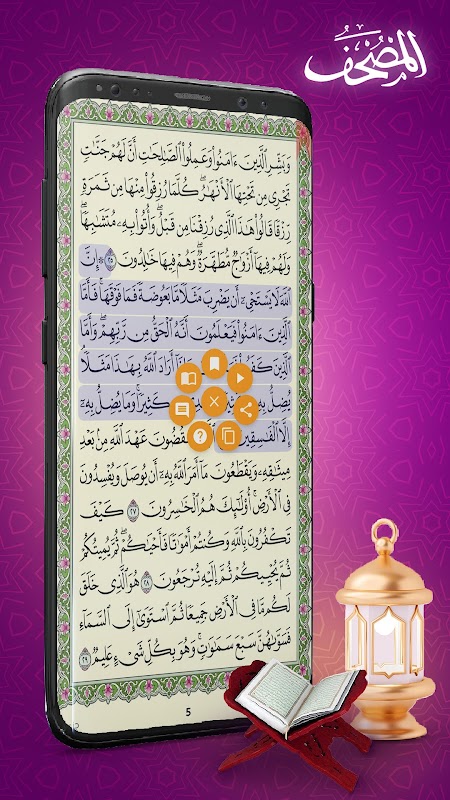 المصحف
وَبَشِّرِ الَّذِينَ ءَامَنُوا وَعَمِلُوا الصَّالِحَاتِ أَنَّ لَهُمْ جَنَّاتٍ
تَجْرِى مِن تَحْتِهَا الْأَنْهَارُ كُلَّمَا رُزِقُوا مِنْهَا مِن ثَمَرَةٍ
رِّزْقًا قَالُوا هَٰذَا الَّذِى رُزِقْنَا مِن قَبْلُ وَأُتُوا بِهِۦ مُتَشَابِهًا
وَلَهُمْ فِيهَا أَزْوَاجٌ مُّطَهَّرَةٌ وَهُمْ فِيهَا خَالِدُونَ ٢٥ إِنَّ
اللَّهَ لَا يَسْتَحْىِۦ أَن يَضْرِبَ مَثَلًا مَّا بَعُوضَةً فَمَا فَوْقَهَا فَأَمَّا
الَّذِينَ ءَامَنُوا فَيَعْلَمُونَ أَنَّهُ الْحَقُّ مِن رَّبِّهِمْ وَأَمَّا
الَّذِينَ أَرَادَ اللَّهُ بِهَٰذَا مَثَلًا
يُضِلُّ بِهِۦ كَثِيرًا وَمَا يُضِلُّ بِهِۦ
إِلَّا الْفَاسِقِينَ يَنقُضُونَ عَهْدَ اللَّهِ مِن بَعْدِ
مِيثَاقِهِۦ وَيَقْطَعُونَ مَا أَمَرَ اللَّهُ بِهِۦ أَن يُوصَلَ وَيُفْسِدُونَ
فِى الْأَرْضِ أُولَٰئِكَ هُمُ الْخَاسِرُونَ ٢٧ كَيْفَ
تَكْفُرُونَ بِاللَّهِ وَكُنتُمْ أَمْوَاتًا فَأَحْيَاكُمْ ثُمَّ يُمِيتُكُمْ
ثُمَّ يُحْيِيكُمْ ثُمَّ إِلَيْهِ تُرْجَعُونَ ٢٨ هُوَ الَّذِى خَلَقَ
لَكُم مَّا فِى الْأَرْضِ جَمِيعًا ثُمَّ اسْتَوَىٰ إِلَى السَّمَاءِ
فَسَوَّاهُنَّ سَبْعَ سَمَاوَاتٍ وَهُوَ بِكُلِّ شَىْءٍ عَلِيمٌ ٢٩
5